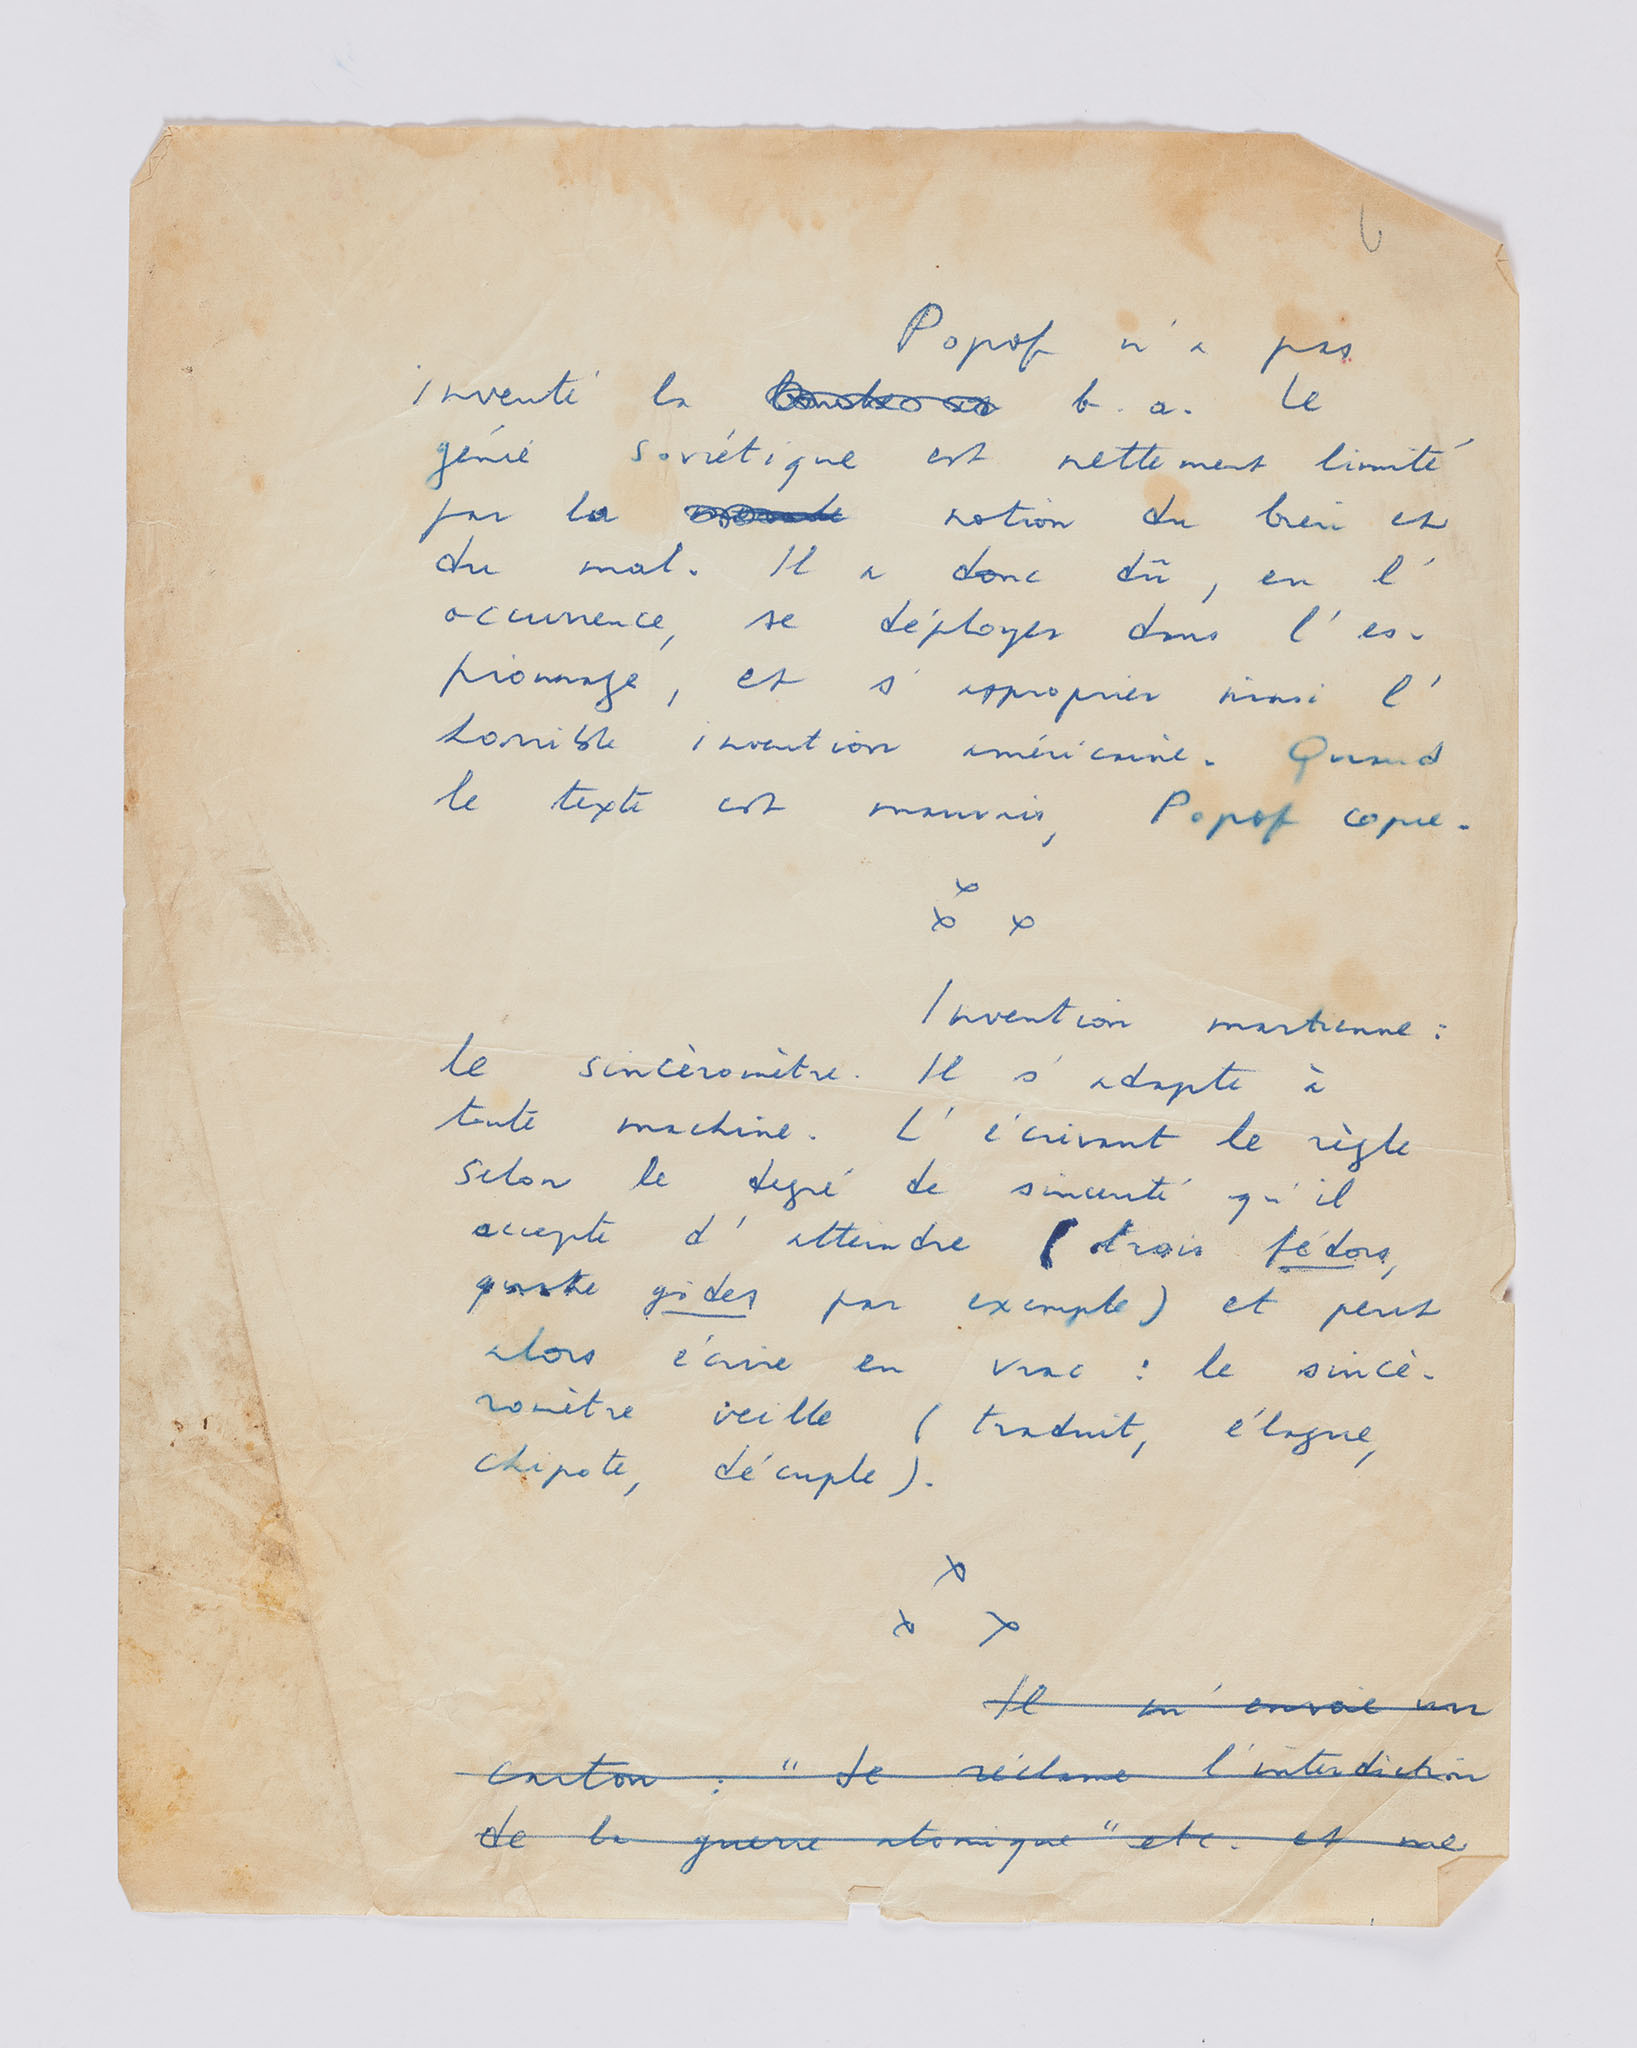 6
Popof n'a pas
inventé la b. a. Le
génie soviétique est nettement limité
par la notion du bien et
du mal. Il a donc dû, en l'
occurrence, se déployer dans l'es-
pionnage, et s'approprier ainsi l'
horrible invention américaine. Quand
le texte est mauvais, Popof copie.
x
x x
Invention martienne :
le sincèromètre. Il s'adapte à
toute machine. L'écrivant le règle
selon le degré de sincerité qu'il
accepte d'atteindre (trois fédors,
quatre gides par exemple) et peut
alors écrire en vrac : le sincè-
romètre veille (traduit, élague,
chipote, décuple).
x
x x
Il m'envoie un
carton : " Je réclame l'interdiction
de la guerre atomique" etc. et me